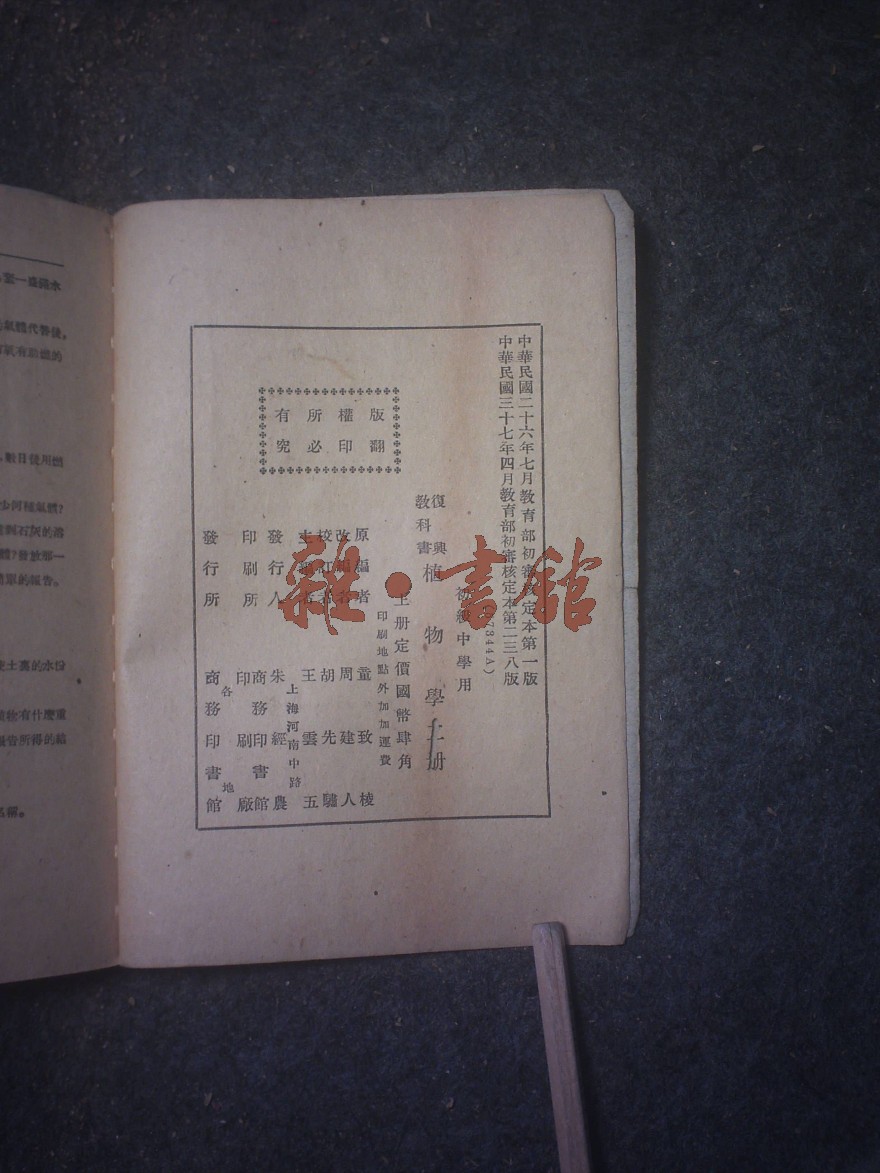 中華民國二十六年七月教育部初審核定本第一版
中華民國三十七年四月教育部初審核定本第二三八版
(7344A)
初級中學用
復興
教科書
植物學上册
上册定價國幣肆角
印刷地點外加運費
原編者 童致棱
改編者 周建人
校訂者 胡先驌
主編者 王雲五
上海河南中路
發行人 朱經農
印刷所 商務印書館
印刷廠
發行所 各地
商務印書館
版權所有
翻印必究
雜·書館
水
氣體代替後,
數目後用
少何種氣體?
石灰的
體?
單的報告。
土裏的水份
物有什麼重
報告所得的結
名稱。